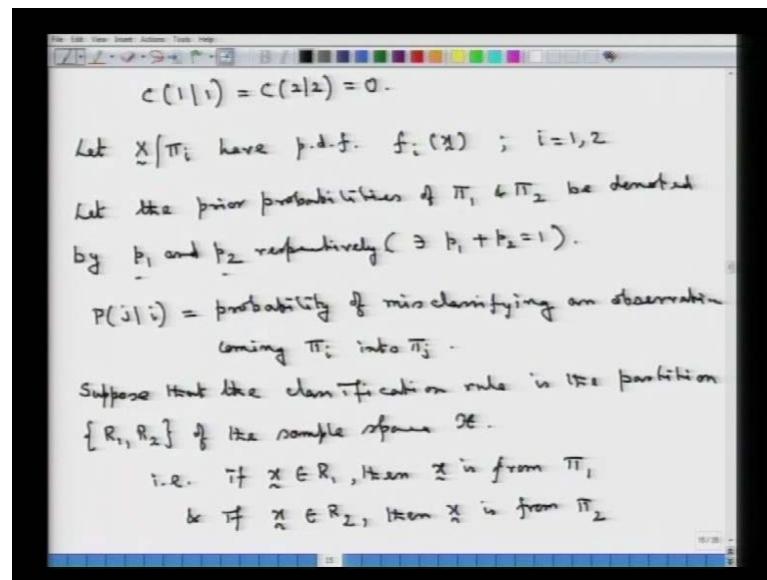 File Edit View Insert Actions Tools Help
C(1|1) = C(2|2) = 0.
Let x̰|π_i have p.d.f. f_i(x̰) ; i=1,2
Let the prior probabilities of π_1 & π_2 be denoted
by p_1 and p_2 respectively (∋ p_1 + p_2 = 1).
P(j|i) = probability of misclassifying an observation
coming π_i into π_j.
Suppose that the classification rule is the partition
{R_1, R_2} of the sample space 𝒳.
i.e. if x̰ ∈ R_1, then x̰ is from π_1
& if x̰ ∈ R_2, then x̰ is from π_2
15